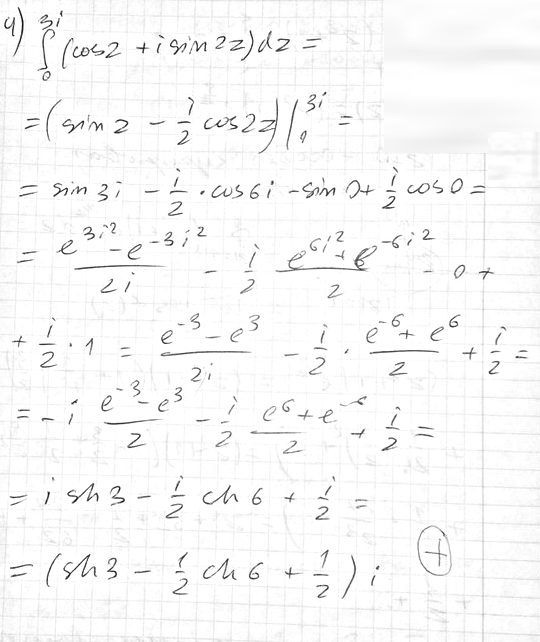 4) ∫₀³ⁱ (cos z + i sin 2z) dz =
= (sin z − i/2 cos 2z) |₀³ⁱ =
= sin 3i − i/2 · cos 6i − sin 0 + i/2 cos 0 =
= (e^(3i²) − e^(−3i²))/(2i) − i/2 (e^(6i²) + e^(−6i²))/2 − 0 +
+ i/2 · 1 = (e^(−3) − e^3)/(2i) − i/2 · (e^(−6) + e^6)/2 + i/2 =
= − i (e^(−3) − e^3)/2 − i/2 (e^6 + e^(−6))/2 + i/2 =
= i sh 3 − i/2 ch 6 + i/2 =
= (sh 3 − 1/2 ch 6 + 1/2) i
+